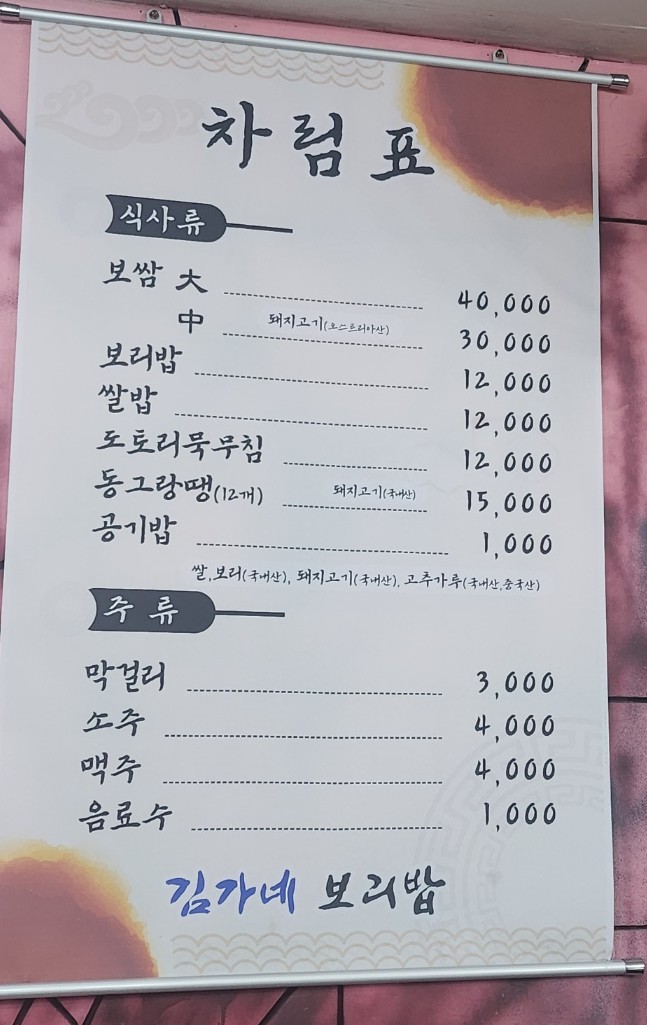 차림표
식사류
보쌈 大 40,000
中 돼지고기(오스트리아산) 30,000
보리밥 12,000
쌀밥 12,000
도토리묵무침 12,000
동그랑땡(12개) 돼지고기(국내산) 15,000
공기밥 1,000
쌀,보리(국내산), 돼지고기(국내산), 고추가루(국내산,중국산)
주류
막걸리 3,000
소주 4,000
맥주 4,000
음료수 1,000
김가네 보리밥